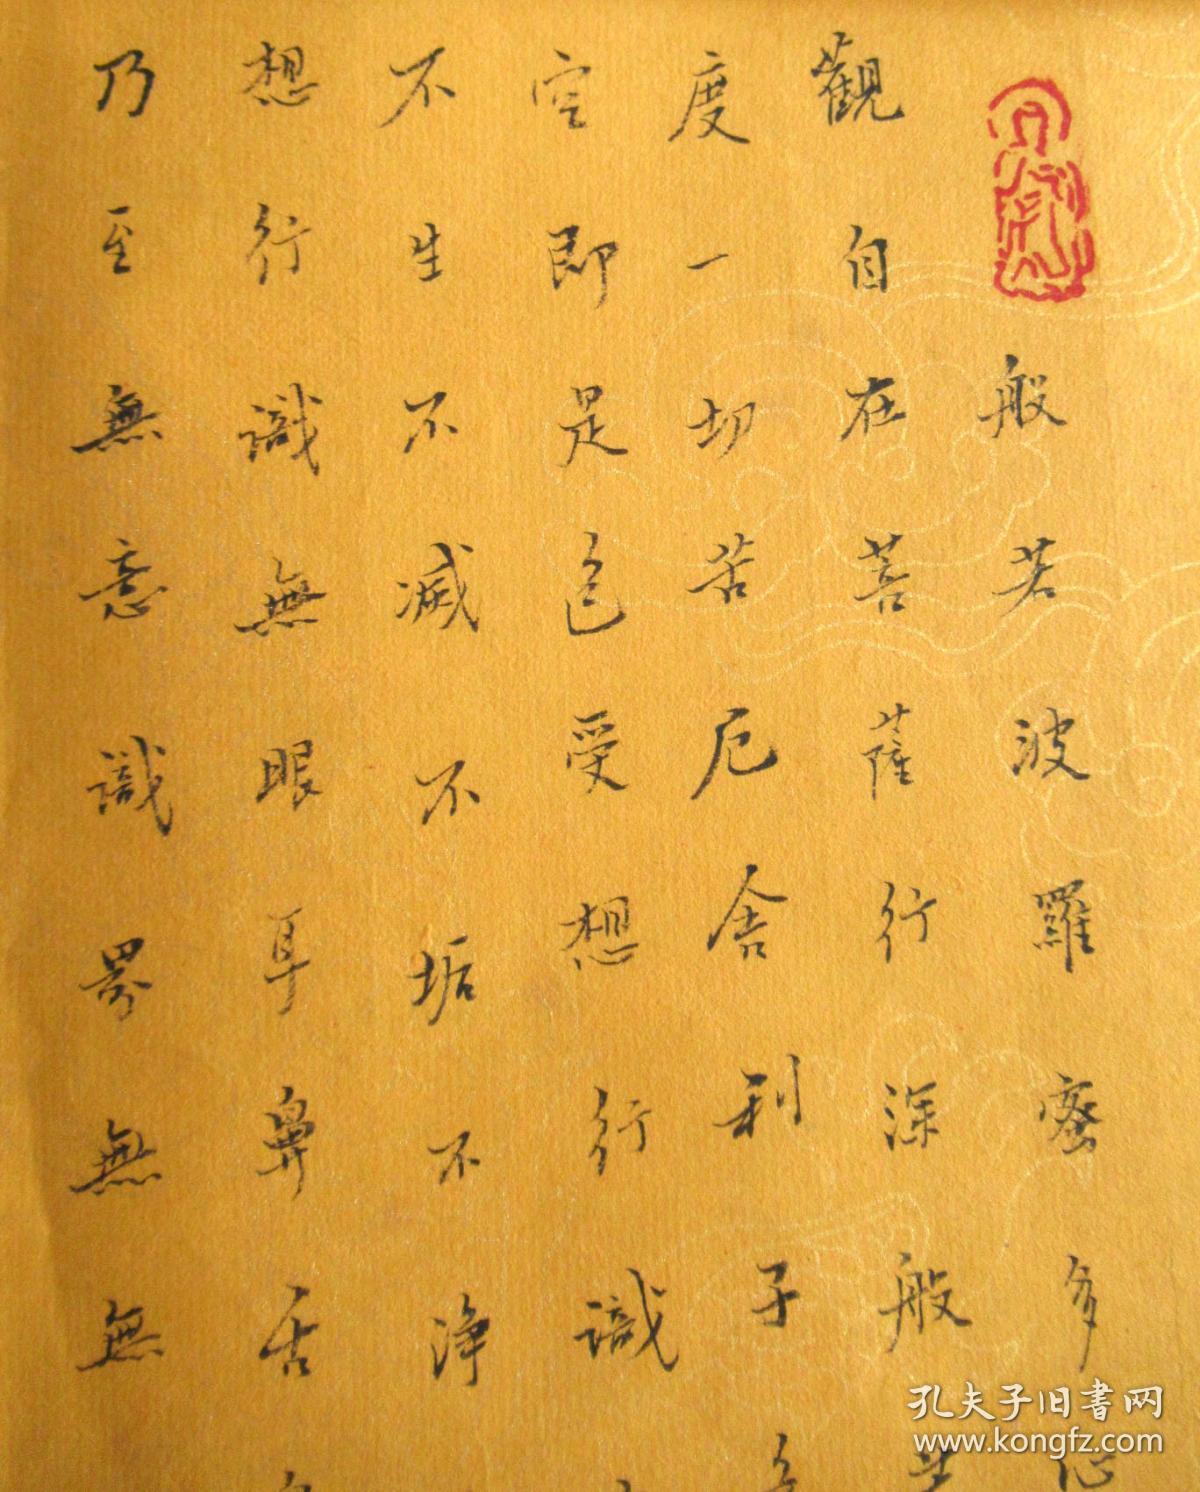 般若波羅蜜多心
觀自在菩薩行深般若
度一切苦厄舍利子色
空即是色受想行識
不生不滅不垢不淨
想行識無眼耳鼻舌身
乃至無意識界無無
孔夫子旧书网
www.kongfz.com